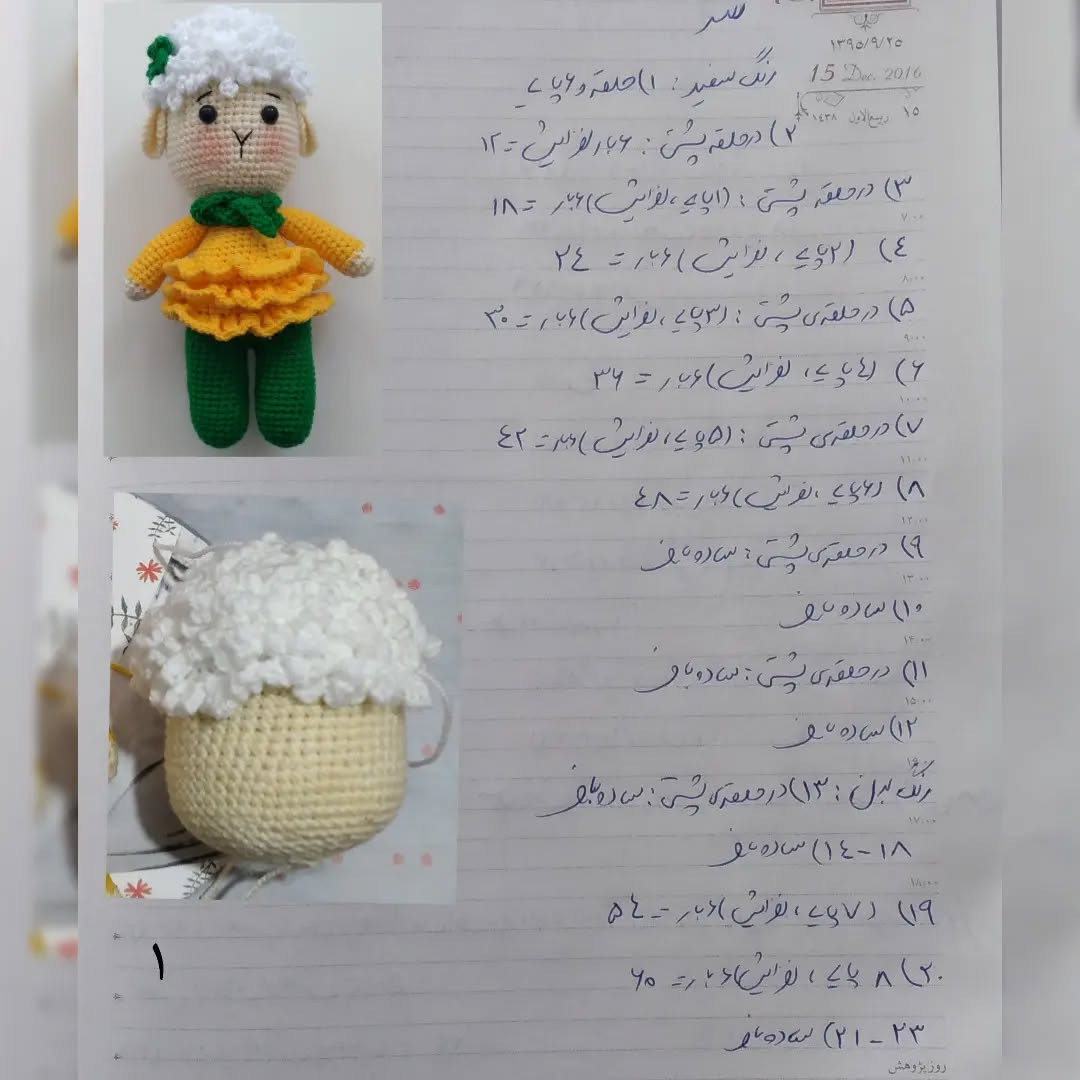 سر
۱۳۹۵/۹/۲۵
15 Dec. 2016
۱۵ ربیع‌الاول ۱۴۳۸
رنگ سفید: ۱) حلقه و ۶ پایه
۲) در حلقه پشتی: ۶ بار افزایش = ۱۲
۳) در حلقه پشتی: (۱ پایه، افزایش) ۶ بار = ۱۸
۷:۰۰
۴) (۲ پایه، افزایش) ۶ بار = ۲۴
۸:۰۰
۵) در حلقه‌ی پشتی: (۳ پایه، افزایش) ۶ بار = ۳۰
۹:۰۰
۶) (۴ پایه، افزایش) ۶ بار = ۳۶
۱۰:۰۰
۷) در حلقه‌ی پشتی: (۵ پایه، افزایش) ۶ بار = ۴۲
۱۱:۰۰
۸) (۶ پایه، افزایش) ۶ بار = ۴۸
۱۲:۰۰
۹) در حلقه‌ی پشتی: ساده بافی
۱۳:۰۰
۱۰) ساده بافی
۱۴:۰۰
۱۱) در حلقه‌ی پشتی: ساده بافی
۱۵:۰۰
۱۲) ساده بافی
رنگ بدن: ۱۳) در حلقه‌ی پشتی: ساده بافی
۱۷:۰۰
۱۴-۱۸) ساده بافی
۱۸:۰۰
۱۹) (۷ پایه، افزایش) ۶ بار = ۵۴
۲۰) ۸ پایه، افزایش) ۶ بار = ۶۰
۲۱-۲۳) ساده بافی
روز پژوهش
۱